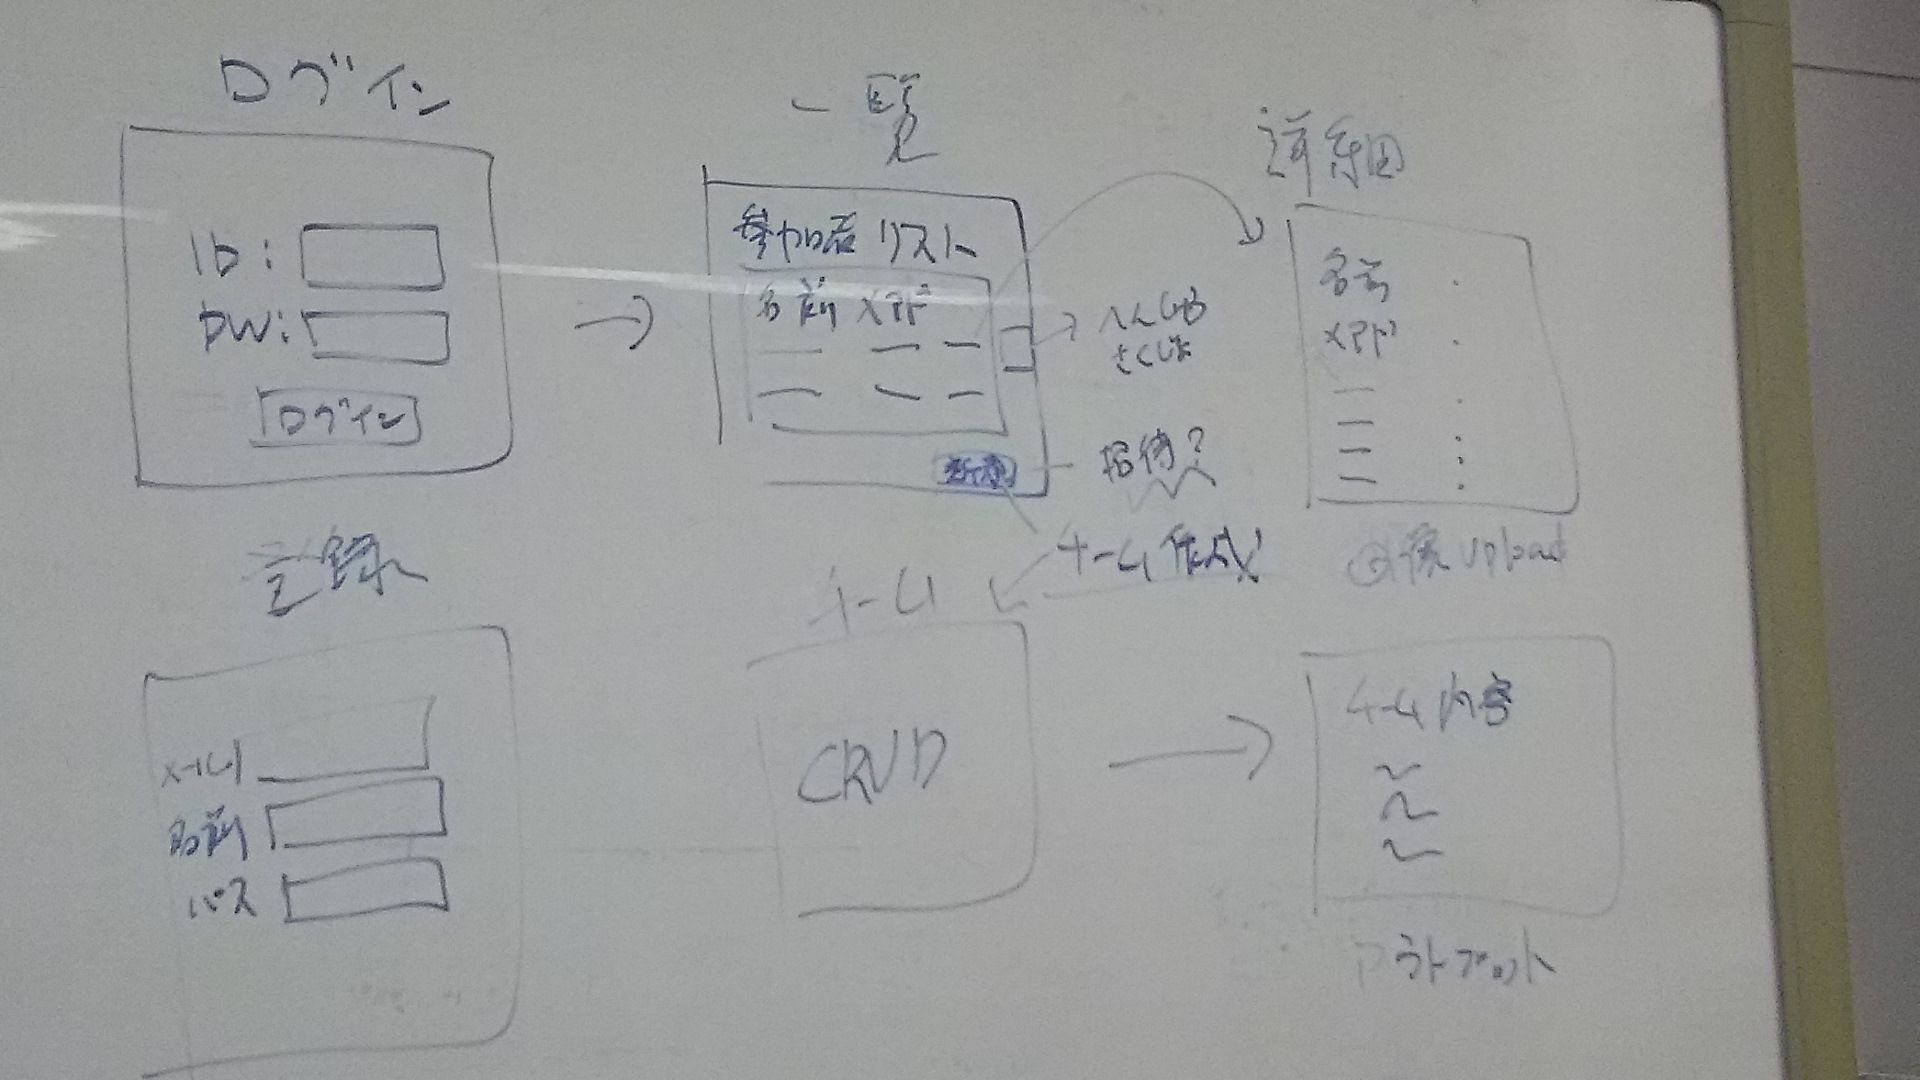 ログイン
ID:
PW:
ログイン
一覧
参加者リスト
名前 メアド
へんしゅう
さくじょ
新規
招待?
チーム作成
詳細
名前 :
メアド :
画像 upload
登録
メール
名前
パス
チーム
CRUD
チーム内容
アウトプット